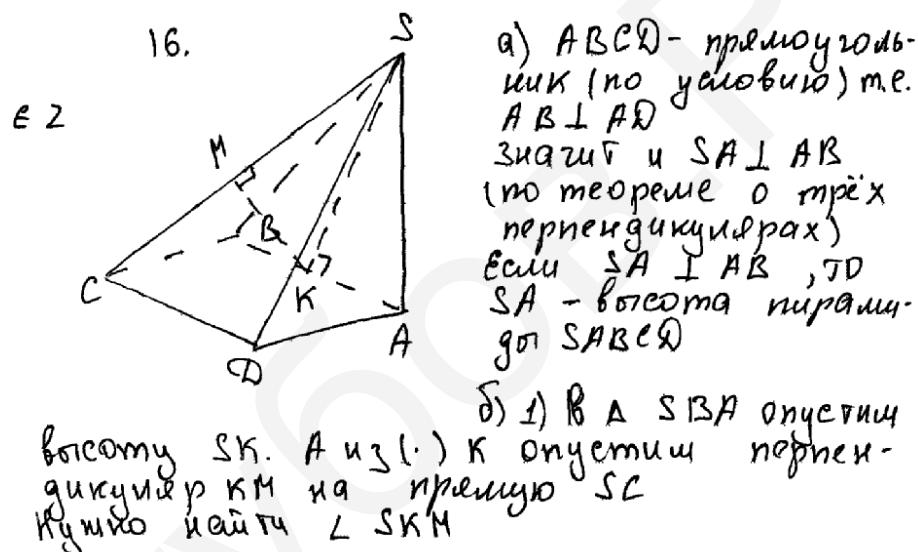 16.
∈ 2
S
M
B
C
K
D
A
а) ABCD - прямоуголь-
ник (по условию) т.е.
AB ⊥ AD
Значит и SA ⊥ AB
(по теореме о трёх
перпендикулярах)
Если SA ⊥ AB, то
SA - высота пирами-
ды SABCD
б) 1) В Δ SBA опустим
высоту SK. А из (·) K опустим перпен-
дикуляр KM на прямую SC
Нужно найти ∠ SKM